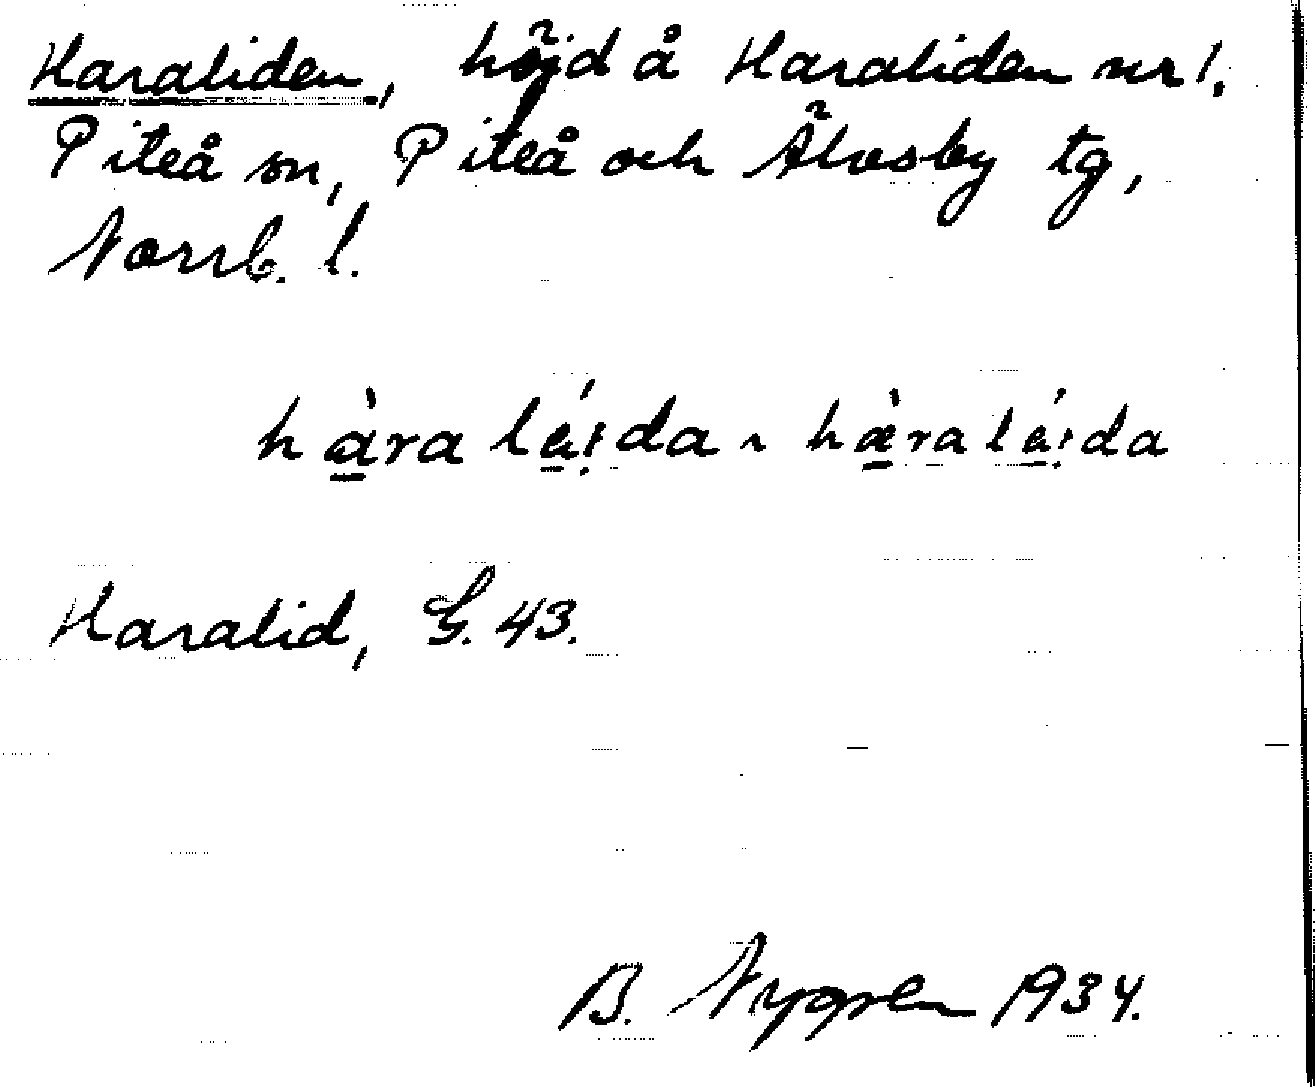 Haraliden, höjd å Haraliden nr 1,
Piteå sn, Piteå och Älvsby tg,
Norrb. l.
hàra lá̱ịda ~ hæ̀ra lá̱ịda
Haralid, G. 43.
B. Nygren 1934.